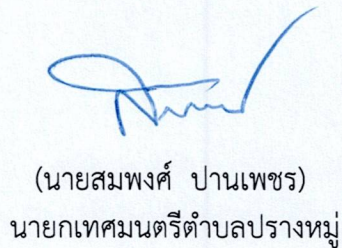 (นายสมพงศ์ ปานเพชร)
นายกเทศมนตรีตำบลปรางหมู่